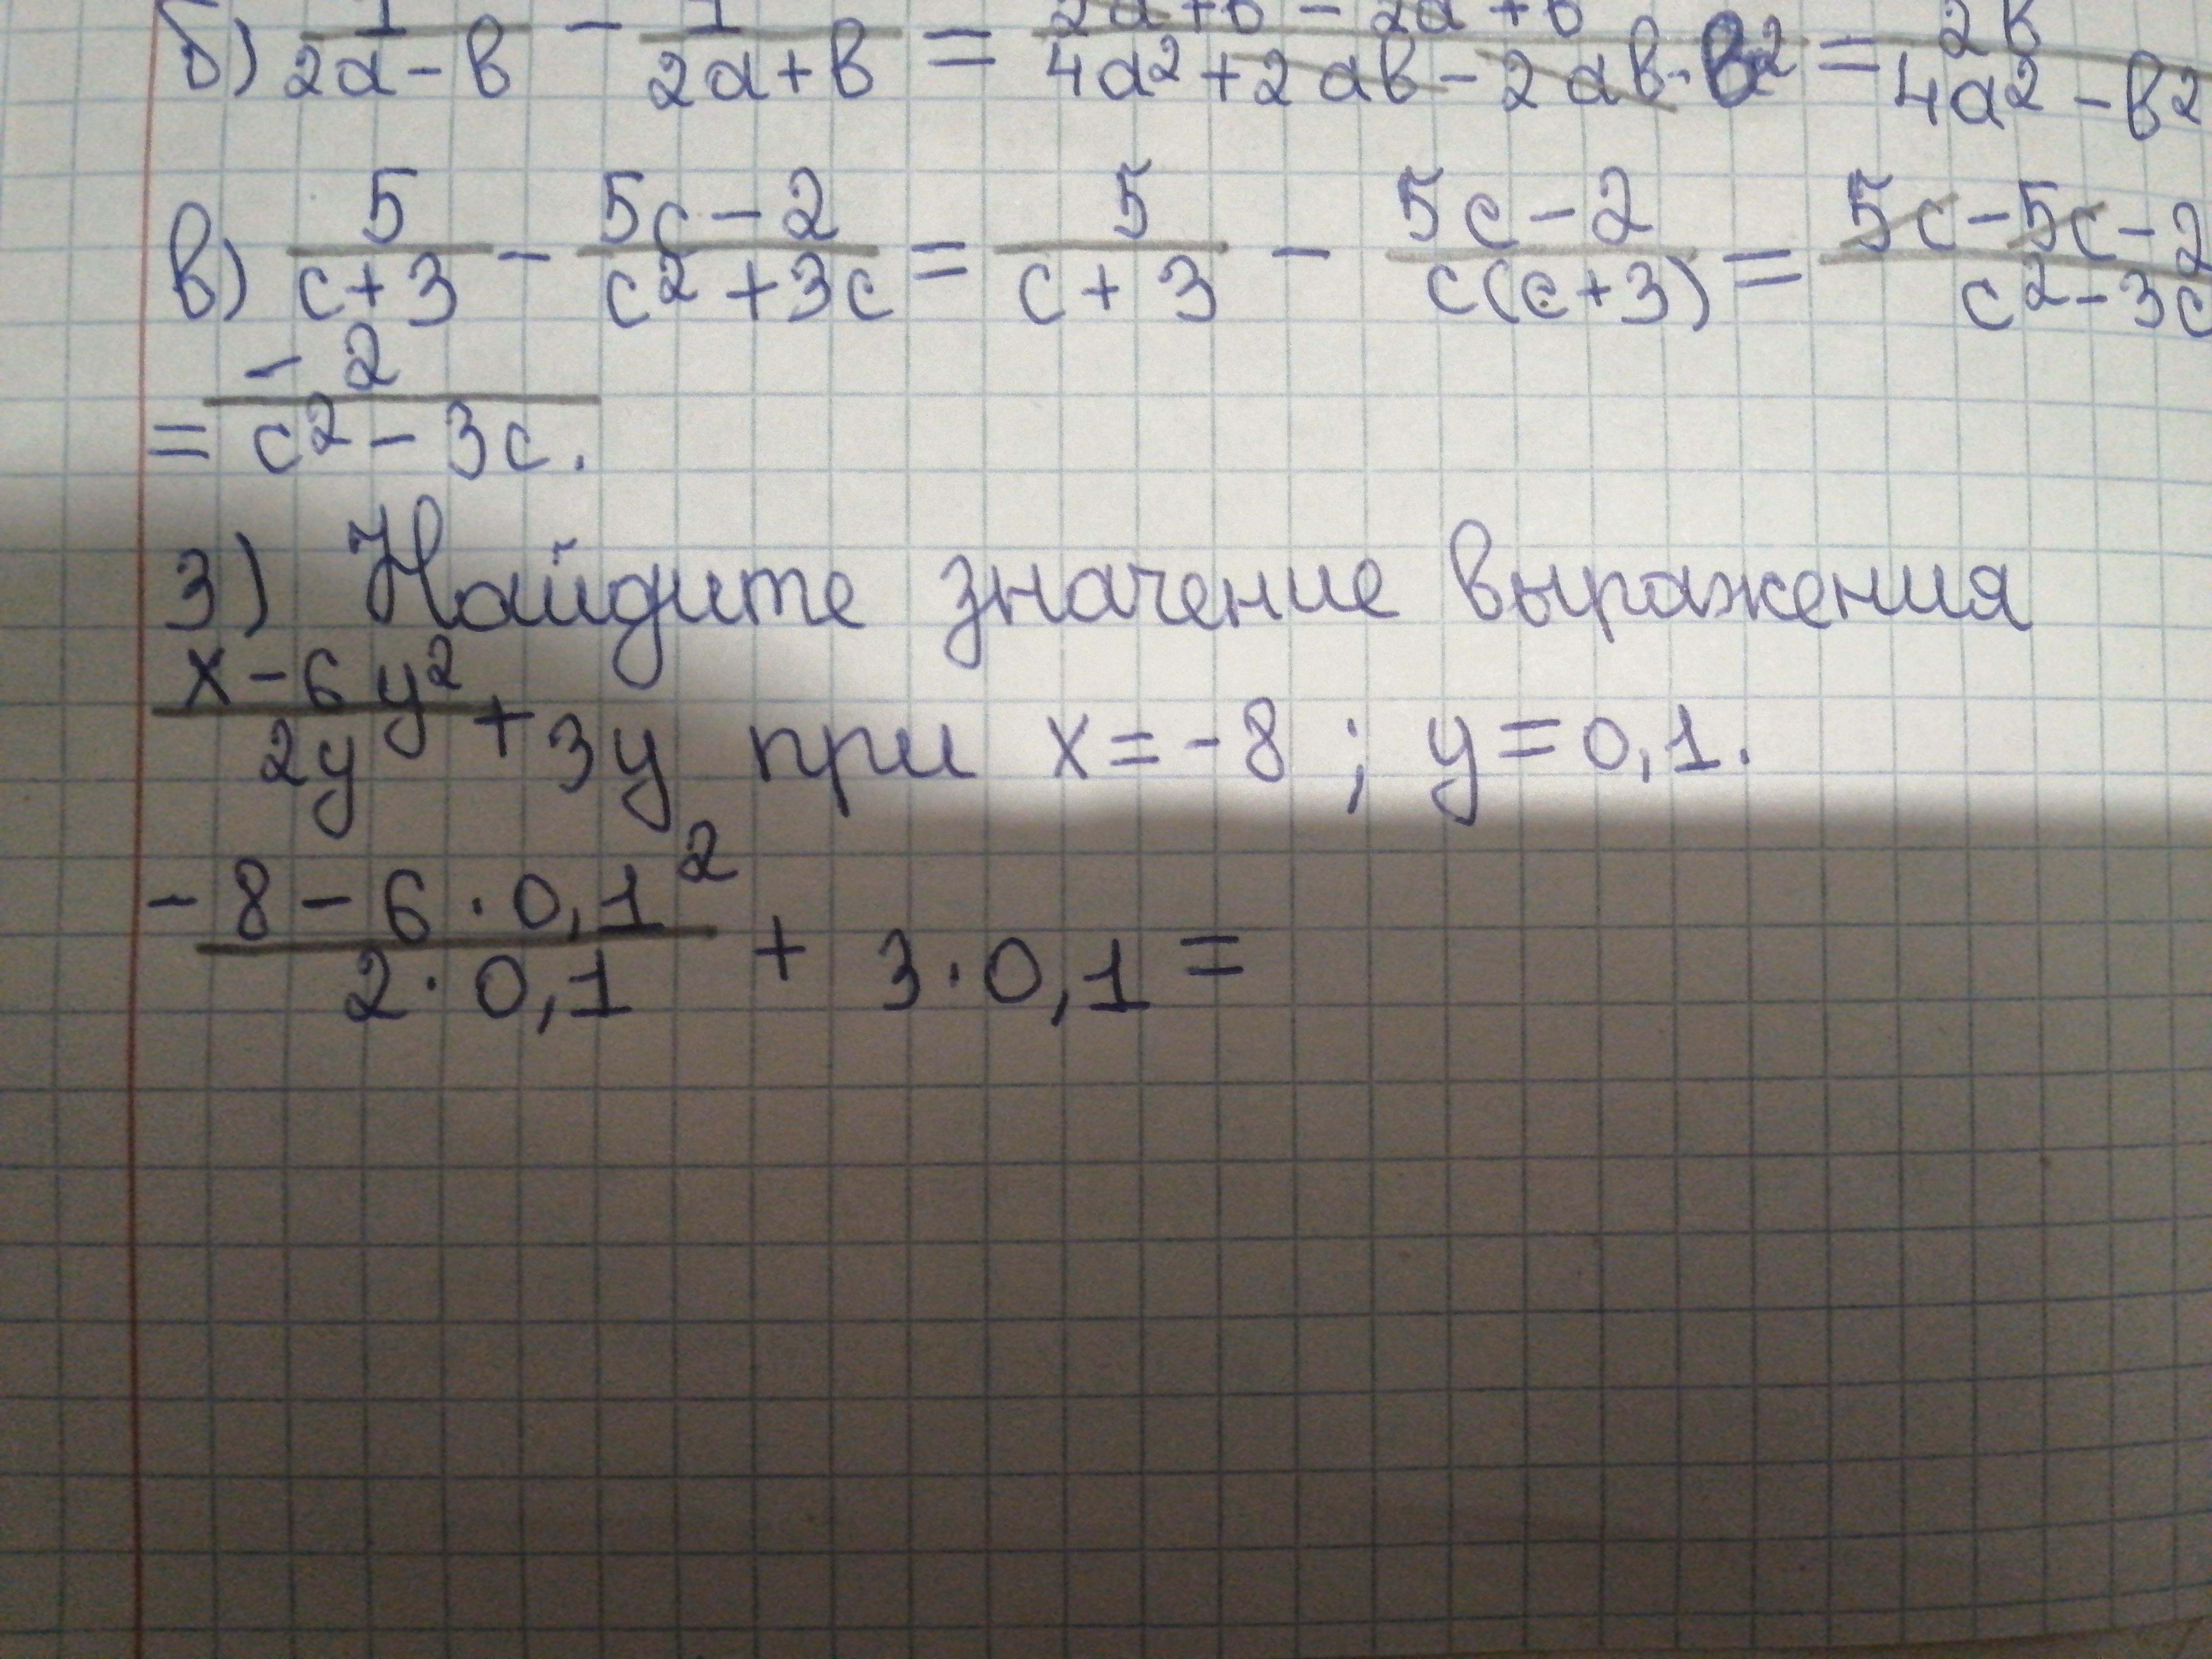 б) 1/(2a-в) - 1/(2a+в) = (2a+в-2a+в)/(4a²+2aв-2aв-в²) = 2в/(4a²-в²)
в) 5/(c+3) - (5c-2)/(c²+3c) = 5/(c+3) - (5c-2)/(c(c+3)) = (5c-5c-2)/(c²-3c)
= -2/(c²-3c).
3) Найдите значение выражения
(x-6y²)/(2y) + 3y при x=-8; y=0,1.
(-8-6·0,1²)/(2·0,1) + 3·0,1=